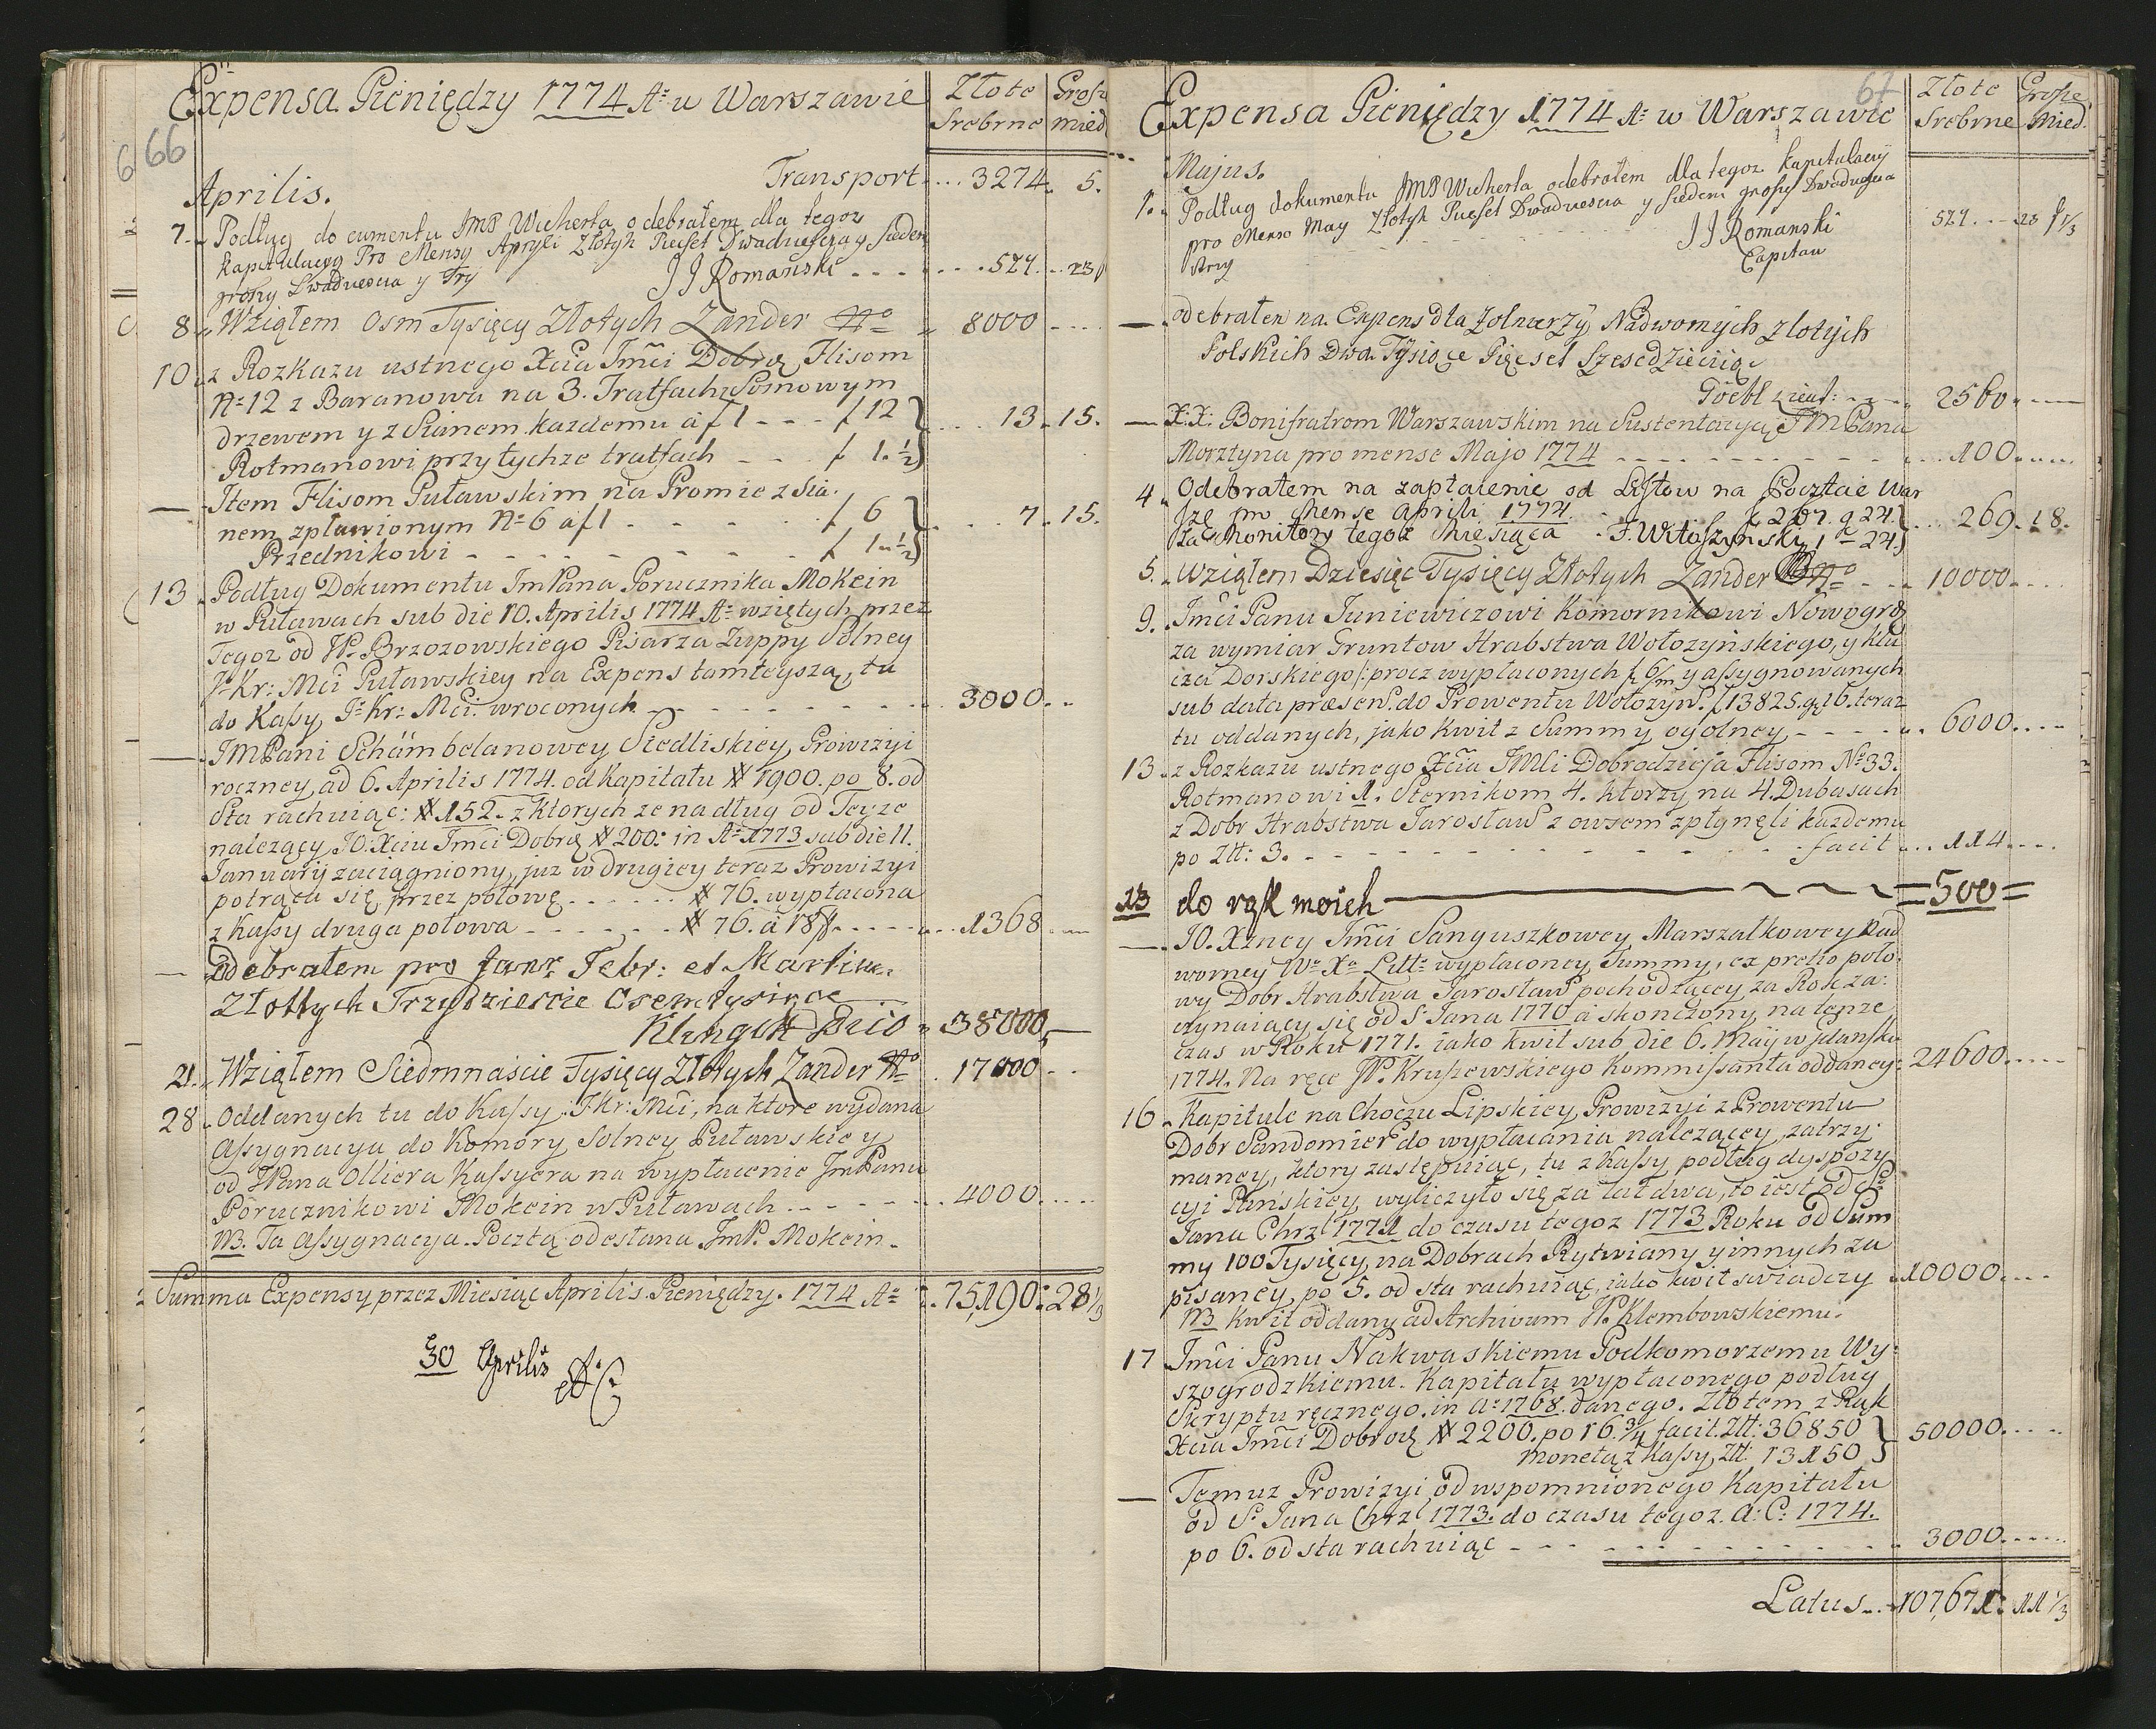 66
Expensa Pieniędzy 1774 A= w Warszawie
Złote Grosz
Srebrne mied
Aprilis.
Transport .... 3274. 5.
7. Podług documentu JMP Wicherta odebrałem dla tegoz
kapitulacyą Pro Mensy Apryli Złotych Piecset Dwadziescia y Siedem
groszy Dwadziescia y Trzy J J Romanski - - - . . . 527. . 23
8. Wziąłem Osm Tysięcy Złotych Zander 8000 - - -
10. z Rozkazu ustnego Xcia Jmci Dobrą Flisom
N=12 z Baranowa na 3. Tratfach Sosnowym
drzewem y z Sianem kazdemu a f 1 - - - f 12
13. 15.
Rotmanowi przy tychze tratfach - - - f 1. 1/2
— Item Flisom Puławskim na Promie z Sia.
nem zpławionym N=6 a f 1 - - - - f 6
7. 15.
Przednikowi - - - - - - - f 1 1/2
13. Podług Dokumentu JmPana Porucznika Mokcin
w Puławach sub die 10. Aprilis 1774 A= wziętych przez
Tegoz od JP. Brzozowskiego Pisarza Zuppy Solney
J= Kr: Mci Puławskiey na Expens tamteyszą, tu
do Kassy J= Kr: Mci: wroconych - - - - - - - 3000. . .
— JMPani Schämbelanowey Siedliskiey Prowizyi
roczney ad 6. Aprilis 1774. od Kapitału # 1900. po 8. od
Sta rachuiąc: # 152. z ktorych ze na dług od Teyze
nalezący JO. Xciu Jmci Dobrą # 200: in A= 1773 sub die 11.
Januarij zaciągniony, juz w drugiey teraz Prowizyi
potrąca się przez połowę . . . . . . # 76. wypłacona
z Kassy druga połowa - - - - - - # 76. a 18 f - - - - - 1368 - —
— Odebrałem pro Janr. Febr: et Martium
Złottych Trzydziescie Osem tysięce
38000. —
21. Wziąłem Siedmnaście Tysięcy Złotych Zander 17000 - -
28. Oddanych tu do Kassy J: Kr: Mci, na ktore wydana
Assygnacya do Komory Solney Puławskiey
od JPana Olliera Kassyera na wypłacenie JmPanu
Porucznikowi Mokcin w Puławach - - - - - 4000. . . . .
NB. Ta Assygnacya Pocztą odesłana JmP. Mokcin.
Summa Expensy przez Miesiąc Aprilis Pieniędzy. 1774 A= 75,190: 28 1/3
30 Aprilis
67
Expensa Pieniędzy 1774 A= w Warszawie
Złote Grosze
Srebrne Mied.
Majus.
1. Podług dokumentu JMP Wicherta odebrałem dla tegoz kapitulacyi
pro Menso May Złotych Piecset Dwadziescia y Siedem groszy Dwadziescia
trzy J J Romanski 527. - - 23 1/3
Capitan
— odebrałen na Expens dla Zolnierzy Nadwornych złotych
Polskich Dwa Tysiące Pięcset Szescdziecięc
2560. —
— X:X: Bonifratrom Warszawskim na Sustentacyą JMPana
Morztyna pro mense Majo 1774 - - - - - - - - - 100. . . . .
4. Odebrałem na zapłacenie od Listow na Poczcie War
sze pro Mense Aprili 1774. - f 267. g 24.
269. 18.
za Monitory tegoz Miesiąca - J. Witoszynski 1 - 24.
5. Wziąłem Dziesięc Tysięcy Złotych Zander 10000. . . .
9. Jmci Panu Juniewiczowi Komornikowi Nowogrod
za wymiar Gruntow Hrabstwa Wołozynskiego, y Klu
cza Dorskiego /: procz wypłaconych f 6/m y assygnowanych
sub data præsen. do Prowentu Wołozyn. f 13825. g 16. teraz
tu oddanych, jako kwit z Summy ogolney - - - - 6000. . . .
13. z Rozkazu ustnego Xcia JMci Dobrodzieja Flisom N= 33.
Rotmanowi 1. Sternikom 4. ktorzy na 4. Dubasach
z Dobr Hrabstwa Jarosław z owsem zpłynęli kazdemu
po Zlt: 3. - - - - - - - - - - - - - facit - . . 114. . . .
13 do rąk moich — = 500 =
— JO. Xzney Jmci Sanguszkowey Marszałkowey Nad
worney W= X= Litt= wypłaconey Summy, ex pretio poło.
wy Dobr Hrabstwa Jarosław pochodzącey za Rok za:
czynaiący się od S. Jana 1770 a skonczony na tenze
czas w Roku 1771. jako kwit sub die 6. Maij w Gdansku
1774. Na ręce JP. Kruszewskiego Kommissanta oddaney: 24600. . . . .
16. Kapitule na Choczu Lipskiey Prowizyi z Prowentu
Dobr Sandomier do wypłacania nalezącey, zatrzy.
maney, ktory zastępuiąc, tu z Kassy podług dyspozy
cyi Pańskiey, wyliczyło się za lat dwa, to iest od S=
Jana Chrzl 1771 do czasu tegoz 1773 Roku od Sum
my 100 Tysięcy na Dobrach Rytwiany y innych za
pisaney, po 5. od sta rachuiąc, jako kwit swiadczy 10000. . . .
NB kwit oddany ad Archivum JP. Klembowskiemu.
17 Jmci Panu Nakwaskiemu Podkomorzemu Wy:
szogrodzkiemu. Kapitału wypłaconego podług
Skryptu ręcznego in A= 1768. danego. Złotem z Rąk
Xcia Jmci Dobrodz # 2200. po 16. 3/4 facit. Zlt: 36850
50000. . . . .
Monetą z Kassy Zlt: 13150
— Temuz Prowizyi od wspomnionego Kapitału
od S= Jana Chrzl 1773. do czasu tegoz. A: C: 1774.
po 6. od sta rachuiąc - - - - - - - - - - 3000. . . . .
Latus . . . 107,671: 11 1/3